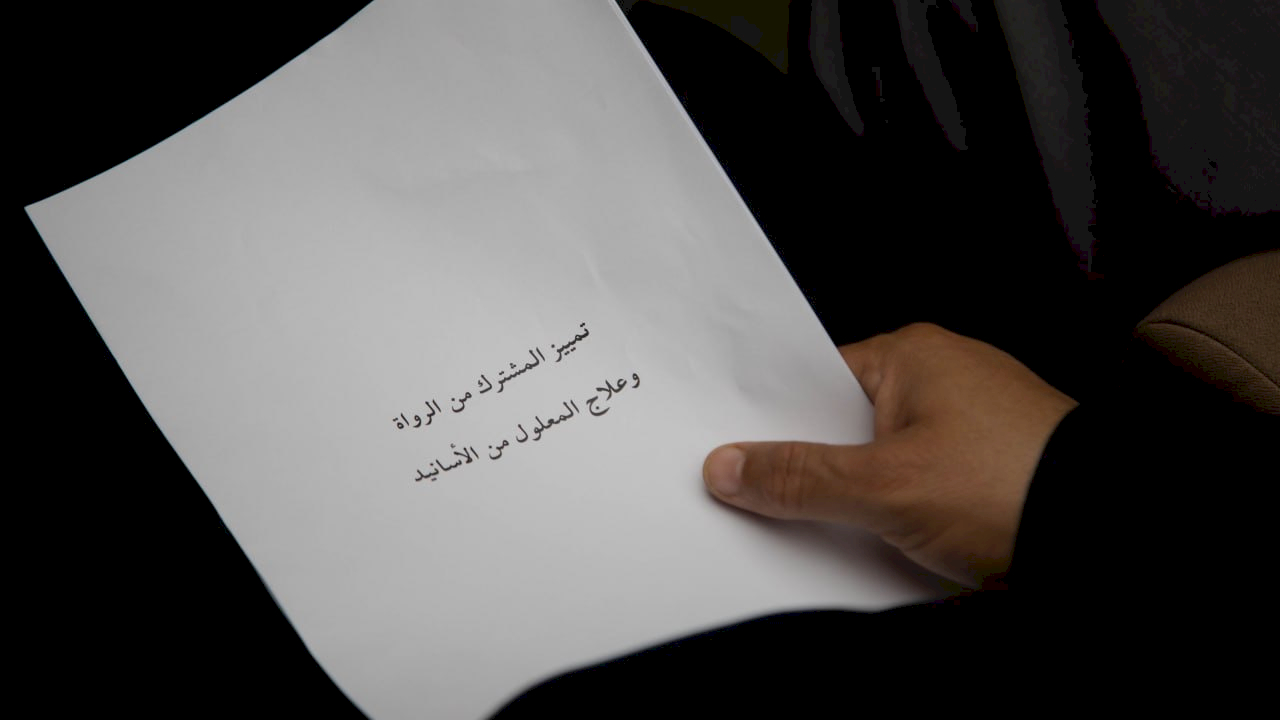 تمييز المشترك من الرواة
وعلاج المعلول من الأسانيد